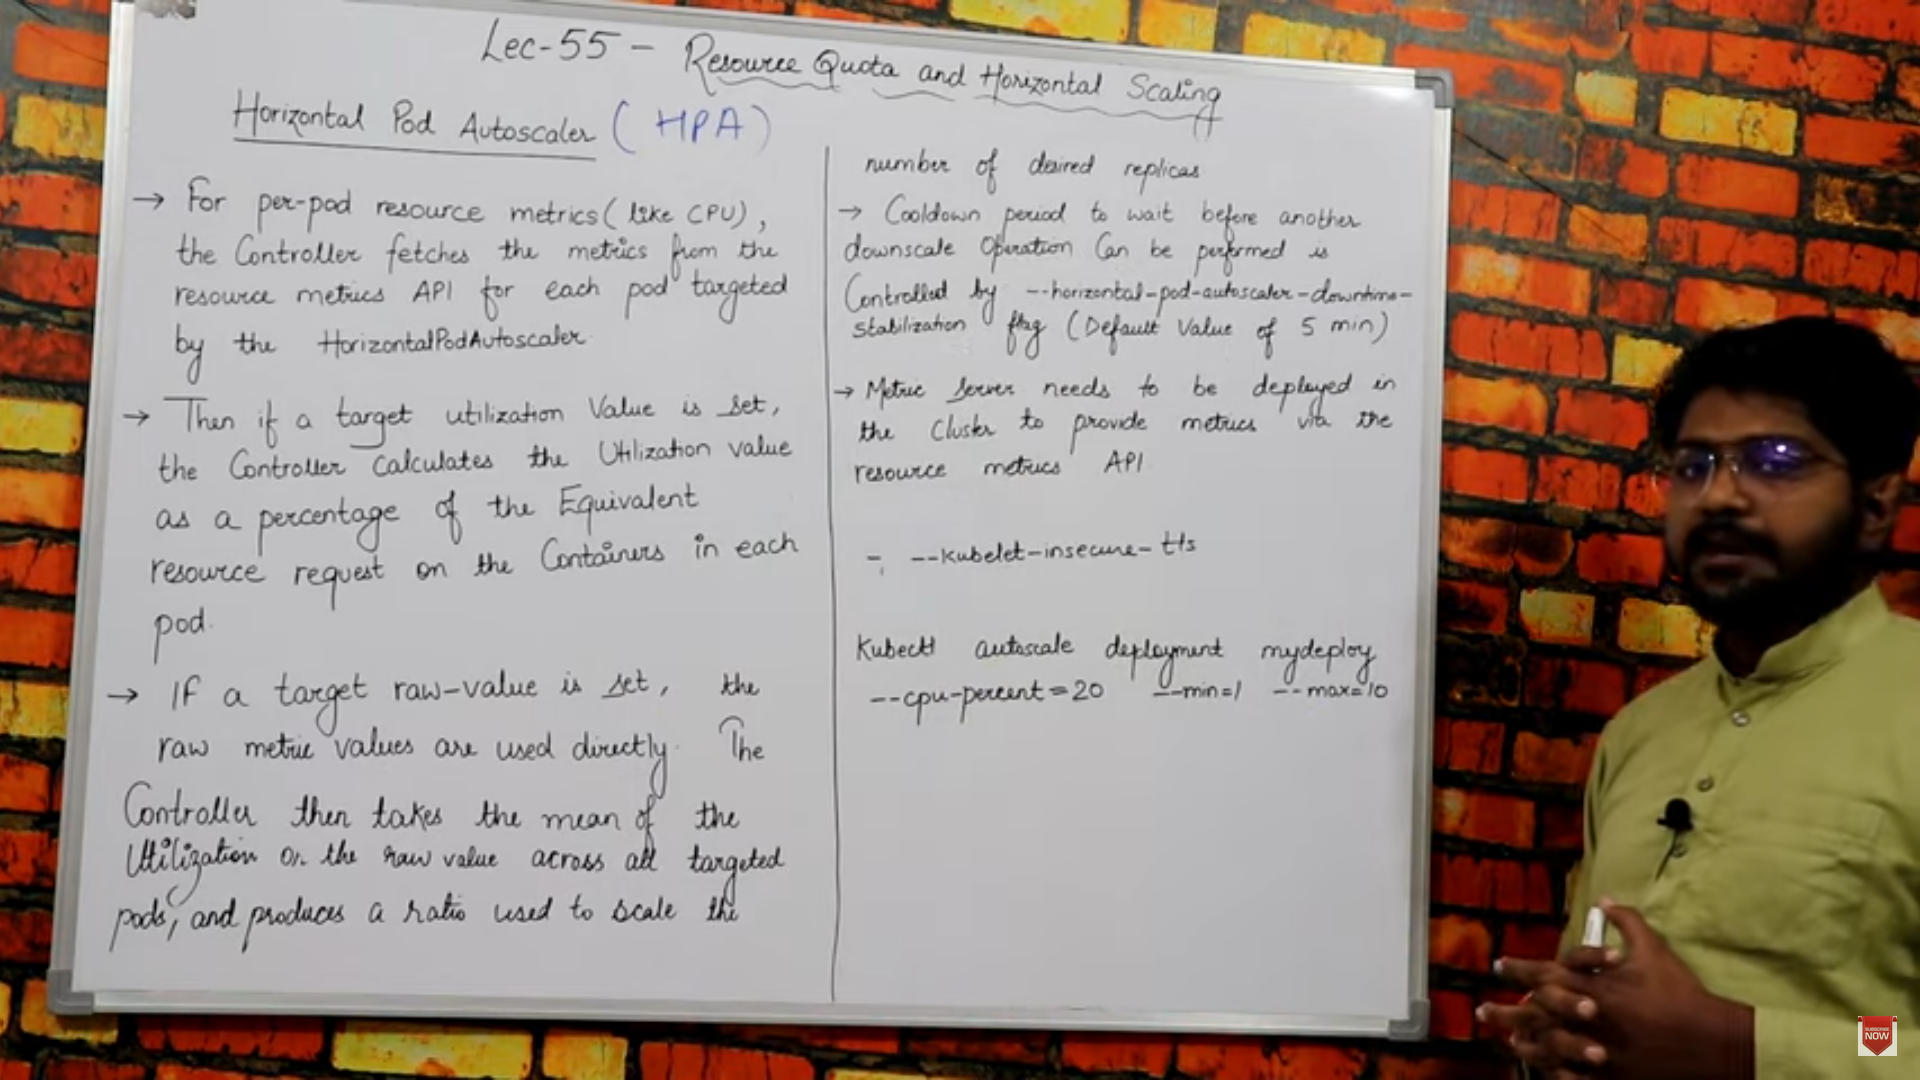 Lec-55 - Resource Quota and Horizontal Scaling
Horizontal Pod Autoscaler (HPA)
→ For per-pod resource metrics (like CPU),
the Controller fetches the metrics from the
resource metrics API for each pod targeted
by the HorizontalPodAutoscaler.
→ Then if a target utilization Value is set,
the Controller Calculates the Utilization value
as a percentage of the Equivalent
resource request on the Containers in each
pod.
→ If a target raw-value is set, the
raw metric values are used directly. The
Controller then takes the mean of the
Utilization or the raw value across all targeted
pods, and produces a ratio used to scale the
number of desired replicas
→ Cooldown period to wait before another
downscale Operation Can be performed is
Controlled by --horizontal-pod-autoscaler-downtime-
stabilization flag (Default Value of 5 min)
→ Metric Server needs to be deployed in
the Cluster to provide metrics via the
resource metrics API
- --kubelet-insecure-tls
Kubectl autoscale deployment mydeploy
--cpu-percent=20 --min=1 --max=10
SUBSCRIBE
NOW